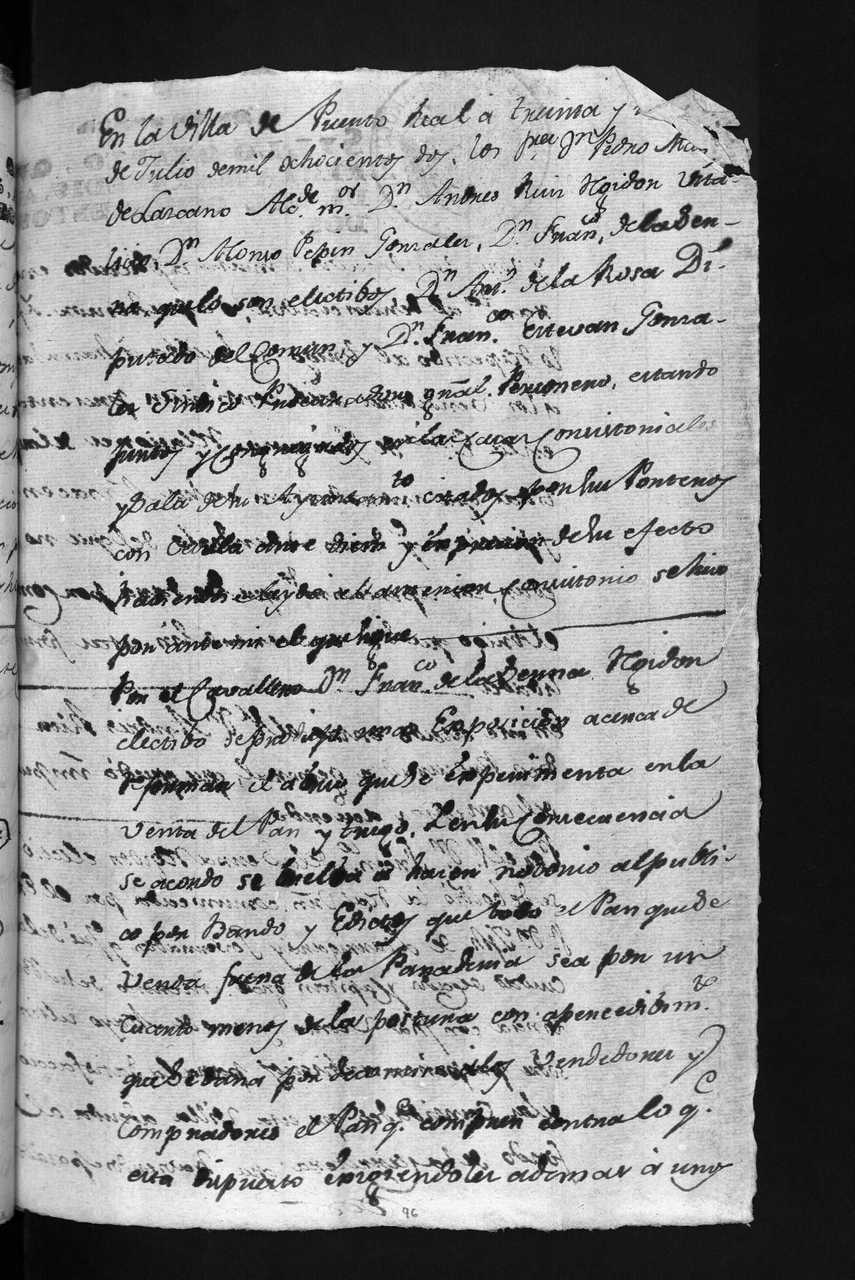 En la Villa de Puerto Real à treinta y
de Julio de mil ochocientos dos, los Sres Dn Pedro
de Lazcano Alcde mor Dn Andres Ruiz Hgidon
Dn Alonso Pepin Gonzales, Dn Franco de la Den-
na que lo son electibos Dn Anto de la Rosa Di-
putado del Comun y Dn Franco Estevan Gonza-
les Sindico Procurador gñal. Personero, estando
juntos y Congregados en las Casas Consistoriales
y Sala de su Ayuntamto citados por su Porteros
con Cedula ante diem y expresion de su efecto
haviendose leydo el antecedente se hizo
por ante mi el que sigue
Por el Cavallero Dn Franco de la Denna Hgidon
electibo se produjo una Exposicion acerca de
reformar el abuso que se experimenta en la
venta del Pan y trigo. Y en su Consecuencia
se acordo se buelba à hacer notorio al publi-
co por Bando y Edictos que todo el Pan que se
Venda fuera de la Panaderia sea por un
Cuarto menos de la postura con apercebiimto
que se dara por decomiso a los Vendedores y
Compradores el Pan qe compren contra lo qe
esta dispuesto exigiendoles ademas à unos
96